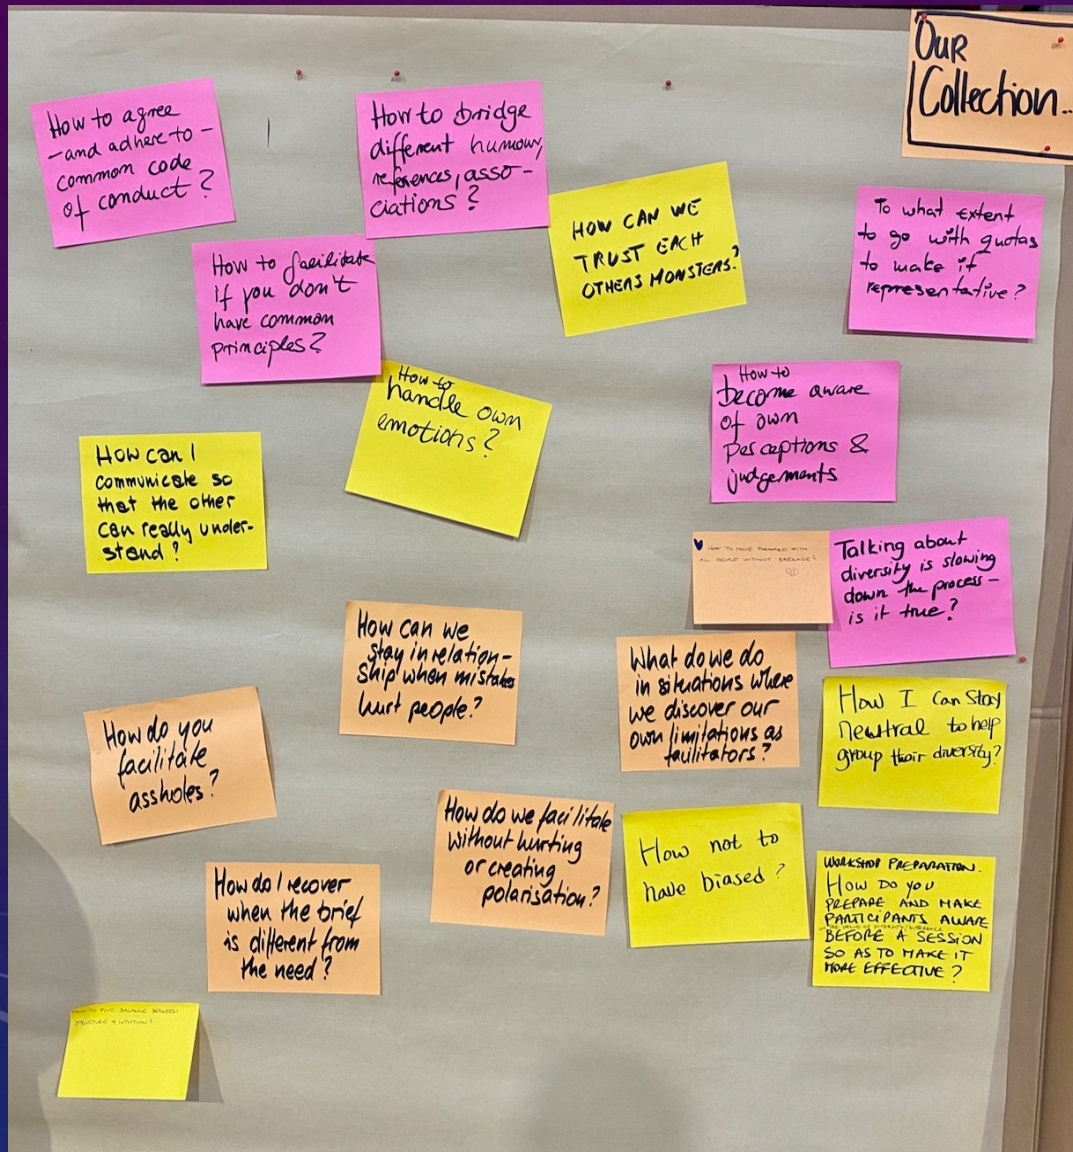 Our
Collection...
How to agree
- and adhere to -
common code
of conduct?
How to bridge
different humour,
references, asso-
ciations?
HOW CAN WE
TRUST EACH
OTHERS MONSTERS?
To what extent
to go with quotas
to make it
representative?
How to facilitate
if you don't
have common
principles?
How to
handle own
emotions?
How to
become aware
of own
perceptions &
judgements
How can I
communicate so
that the other
can really under-
stand?
HOW TO MOVE FORWARD WITH
ALL PEOPLE WITHOUT BREAKAGE?
Talking about
diversity is slowing
down the process -
is it true?
How can we
stay in relation-
ship when mistakes
hurt people?
What do we do
in situations where
we discover our
own limitations as
facilitators?
How I can stay
neutral to help
group their diversity?
How do you
facilitate
assholes?
How do we facilitate
without hurting
or creating
polarisation?
How not to
have biased?
WORKSHOP PREPARATION.
HOW DO YOU
PREPARE AND MAKE
PARTICIPANTS AWARE
BEFORE A SESSION
SO AS TO MAKE IT
MORE EFFECTIVE?
How do I recover
when the brief
is different from
the need?
HOW TO FIND BALANCE BETWEEN
STRUCTURE & INTUITION?